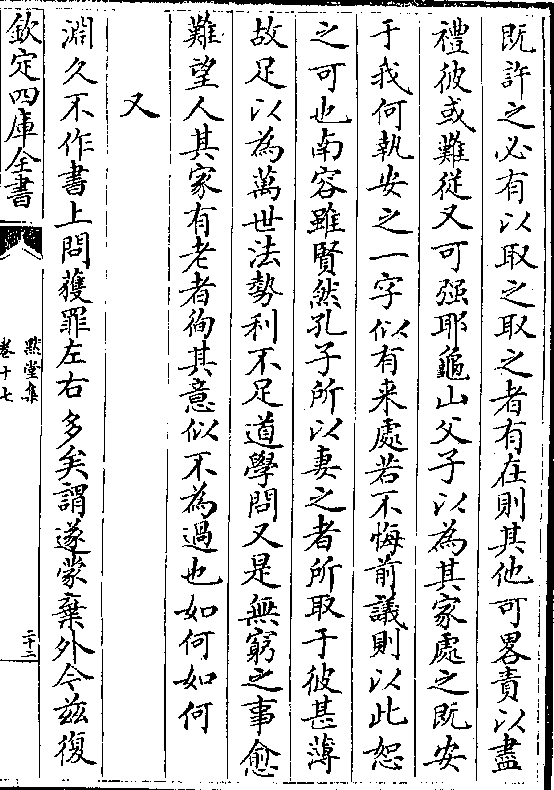 既許之必有以取之取之者有在則其他可畧責以盡
禮彼或難從又可强耶龜山父子以為其家處之既安
于我何執安之一字似有来處若不悔前議則以此恕
之可也南容雖賢然孔子所以妻之者所取于彼甚薄
故足以為萬世法勢利不足道學問又是無窮之事愈
難望人其家有老者徇其意似不為過也如何如何
又
淵久不作書上問獲罪左右多矣謂遂蒙棄外今兹復
欽定四庫全書
黙堂集
卷十七
二十二